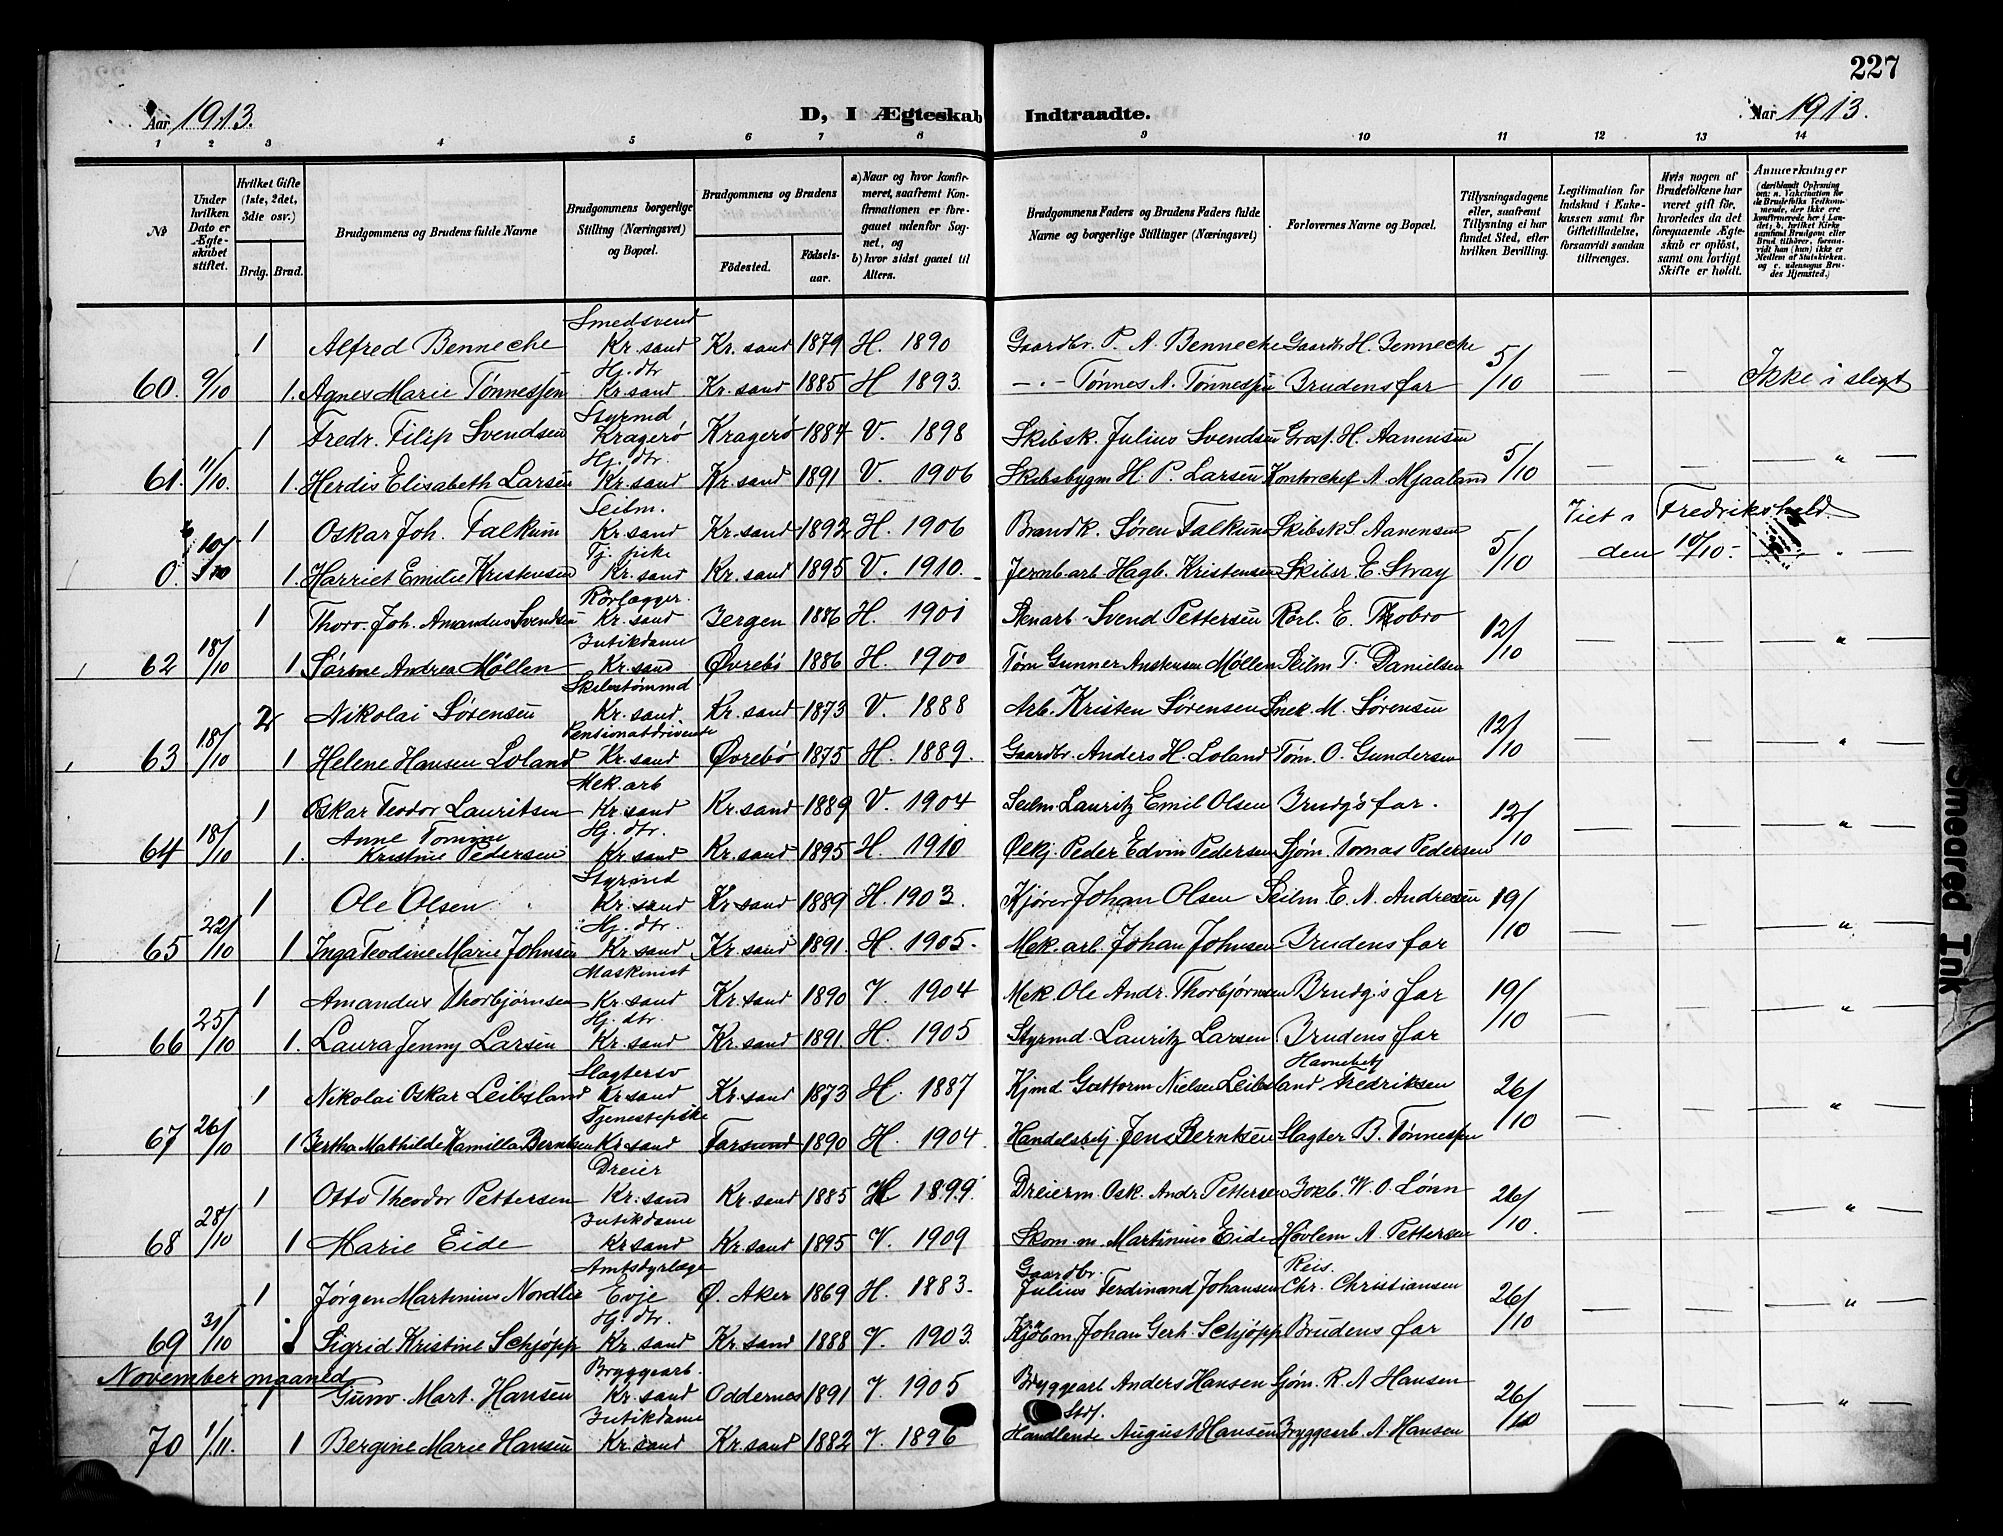 227
Aar 1913.
D, I Ægteskab Indtraadte.
Aar 1913.
1 2 3 4 5 6 7 8 9 10 11 12 13 14
No
Under hvilken Dato er Ægteskabet stiftet.
Hvilket Gifte (1ste, 2det, 3die osv.)
Brdg. Brud.
Brudgommens og Brudens fulde Navne
Brudgommens borgerlige Stilling (Næringsvei) og Bopæl.
Brudgommens og Brudens
Födested. Födsels-aar.
a) Naar og hvor konfirmeret, saafremt Konfirmationen er foregaaet udenfor Sognet, og
b) hvor sidst gaaet til Alters.
Brudgommens Faders og Brudens Faders fulde Navne og borgerlige Stillinger (Næringsvei)
Forlovernes Navne og Bopæl.
Tillysningsdagene eller, saafremt Tillysning ei har fundet Sted, efter hvilken Bevilling.
Legitimation for Indskud i Enkekassen samt for Giftetilladelse, forsaavidt saadan tiltrænges.
Hvis nogen af Brudefolkene har været gift før, hvorledes da det foregaaende Ægteskab er opløst, samt om lovligt Skifte er holdt.
Anmærkninger
(deriblandt Oplysning om: a. Vakcination for de Brudefolks Vedkommende, der ikke ere konfirmerede her i Landet; b. hvilket Kirkesamfund Brudgom eller Brud tilhörer, forsaavidt han (hun) ikke er Medlem af Statskirken, og c. udensogns Brudes Hjemsted.)
Smedsvend
1 Alfred Benneche Kr. sand Kr. sand 1879 H. 1890 Gaardbr. P. A. Bennecke Gaardbr. H. Bennecke 5/10
Hj. dtr
60. 9/10 1. Agnes Marie Tønnessen Kr. sand Kr. sand 1885 H 1893. — . — Tønnes A. Tønnessen Brudens far — — Ikke i slegt
Styrmd
1 Fredr. Filip Svendsen Kragerö Kragerö 1884 V. 1898 Skibsk. Julius Svendsen Grosf. H. Aanensen 5/10
Hj. dtr.
61. 11/10. 1. Herdis Elisabeth Larsen Kr. sand Kr. sand 1891 V. 1906 Skibsbygm H. P. Larsen Kontorchef A. Mjaaland — — "
Seilm.
1 Oskar Joh. Falkum Kr. sand Kr. sand 1892 H. 1906 Brandk. Søren Falkum Skibsk S. Aanensen 5/10 Viet i Fredrikshald.
Tj. pike
0. 10/10 1. Harriet Emilie Kristensen Kr. sand Kr. sand 1895 V. 1910. Jernb.arb. Hagb. Kristensen Skibsr. E. Stray den 10/10. — "
Rörlægger.
1 Thorv. Joh. Amandus Svendsen Kr. sand Bergen 1886 H. 1901 Stenarb. Svend Pettersen Rörl. E. Thobro 12/10
Butikdame
62 18/10 1 Sørine Andrea Møllen Kr. sand Øvrebö 1886 H. 1900 Tøm Gunner Anstensen Møllen Seilm T. Danielsen — — "
Skibstømmd
2 Nikolai Sørensen Kr. sand Kr. sand 1873 V. 1888 Arb. Kristen Sørensen Snek. M. Sørensen 12/10
Pensionatdrivende
63 18/10 1 Helene Hansen Loland Kr. sand Øvrebö 1875 H. 1889. Gaardbr. Anders H. Loland Tøm. O. Gundersen — — "
Mek. arb
1 Oskar Teodor Lauritsen Kr. sand Kr. sand 1889 V. 1904 Seilm Lauritz Emil Olsen Brudg's far. 12/10
Anne Tomine Hj. dtr.
64 18/10 1. Kristine Pedersen Kr. sand Kr. sand 1895 H. 1910 Ølkj. Peder Edvin Pedersen Sjøm. Tomas Pedersen — — "
Styrmd
1 Ole Olsen Kr. sand Kr. sand 1889 H. 1903. Kjører Johan Olsen Seilm. E. A. Andresen 19/10
Hj. dtr.
65 22/10 1 Inga Teodine Marie Johnsen Kr. sand Kr. sand 1891. H. 1905. Mek. arb. Johan Johnsen Brudens far — — "
Maskinist
1 Amandus Thorbjørnsen Kr. sand Kr. sand 1890 V. 1904 Mek. Ole Andr. Thorbjørnsen Brudg's far 19/10
Hj. dtr.
66 25/10 1. Laura Jenny Larsen Kr. sand Kr. sand 1891. H. 1905 Styrmd. Lauritz Larsen Brudens far — — "
Slagtersv Havnebetj
1 Nikolai Oskar Leibsland Kr. sand Kr. sand 1873 H. 1887 Kjmd Guttorm Nielsen Leibsland Fredriksen 26/10
Tjenestepike
67 26/10 1 Bertha Mathilde Kamilla Berntsen Kr. sand Farsund 1890 H. 1904. Handelsbetj. Jens Berntsen Slagter B. Tønnessen — — "
Dreier
1 Otto Theodor Pettersen Kr. sand Kr. sand 1885 H 1899. Dreierm. Osk. Andr. Pettersen Bokb. W. O. Lönn 26/10.
Butikdame
68 28/10 1 Marie Eide Kr sand Kr. sand 1895 V. 1909 Skom. m. Martinius Eide Høvlem A. Pettersen — — "
Amtsdyrlæge Gaardbr. Reis.
1 Jørgen Martinius Nordlie Evje Ø. Aker 1869 H. 1883. Julius Ferdinand Johansen Chr. Christiansen 26/10
Hj. dtr.
69 31/10 1 Sigrid Kristine Schjøpp Kr. sand Kr. sand 1888 V. 1903. Kjöbm. Johan Gerh. Schjøpp Brudens far — — "
November maaned Bryggearb.
1 Gunv. Mart. Hansen Kr. sand Oddernes 1891 V. 1905 Bryggearb Anders Hansen Sjøm. R. A Hansen 26/10
Butikdame
70 1/11. 1 Bergine Marie Hansen Kr. sand Kr. sand 1882 V. 1896 Handlende August Hansen Bryggearb. A. Hansen — — "
Smeared Ink